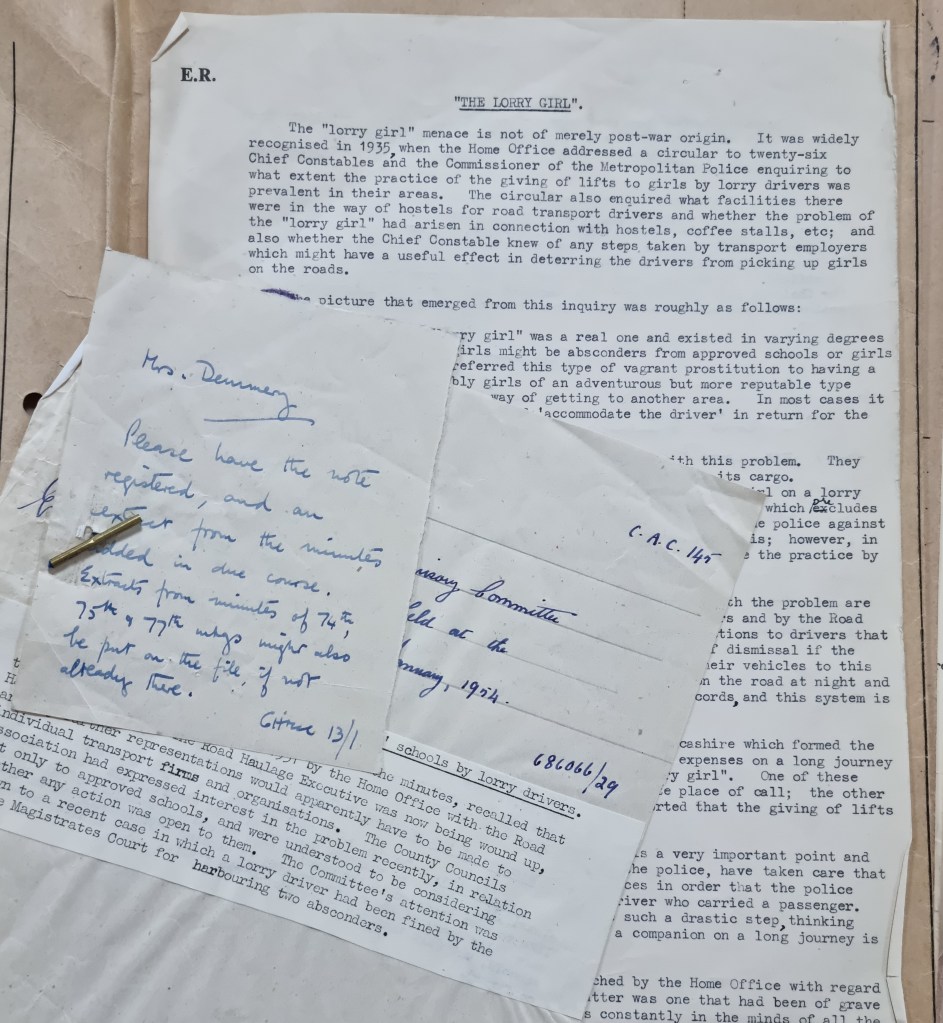 E.R.
"THE LORRY GIRL".
The "lorry girl" menace is not of merely post-war origin. It was widely
recognised in 1935, when the Home Office addressed a circular to twenty-six
Chief Constables and the Commissioner of the Metropolitan Police enquiring to
what extent the practice of the giving of lifts to girls by lorry drivers was
prevalent in their areas. The circular also enquired what facilities there
were in the way of hostels for road transport drivers and whether the problem of
the "lorry girl" had arisen in connection with hostels, coffee stalls, etc; and
also whether the Chief Constable knew of any steps taken by transport employers
which might have a useful effect in deterring the drivers from picking up girls
on the roads.
picture that emerged from this inquiry was roughly as follows:
girl" was a real one and existed in varying degrees
girls might be absconders from approved schools or girls
referred this type of vagrant prostitution to having a
girls of an adventurous but more reputable type
way of getting to another area. In most cases it
'accommodate the driver' in return for the
with this problem. They
its cargo.
on a lorry
which
police against
is; however, in
the practice by
the problem are
and by the Road
to drivers that
dismissal if the
their vehicles to this
on the road at night and
and this system is
which formed the
expenses on a long journey
girl". One of these
place of call; the other
that the giving of lifts
is a very important point and
the police, have taken care that
in order that the police
driver who carried a passenger.
such a drastic step, thinking
a companion on a long journey is
by the Home Office with regard
was one that had been of grave
constantly in the minds of all the
Mrs. Demmery
Please have the note
registered, and an
extract from the minutes
added in due course.
Extracts from minutes of 74th,
75th & 77th mtgs might also
be put on the file, if not
already there.
13/1
C.A.C. 145
Committee
held at the
January, 1954.
686066/29
schools by lorry drivers.
the minutes, recalled that
by the Home Office with the Road
the Road Haulage Executive was now being wound up,
further representations would apparently have to be made to
individual transport firms and organisations. The County Councils
Association had expressed interest in the problem recently, in relation
only to approved schools, and were understood to be considering
whether any action was open to them. The Committee's attention was
to a recent case in which a lorry driver had been fined by the
Magistrates Court for harbouring two absconders.